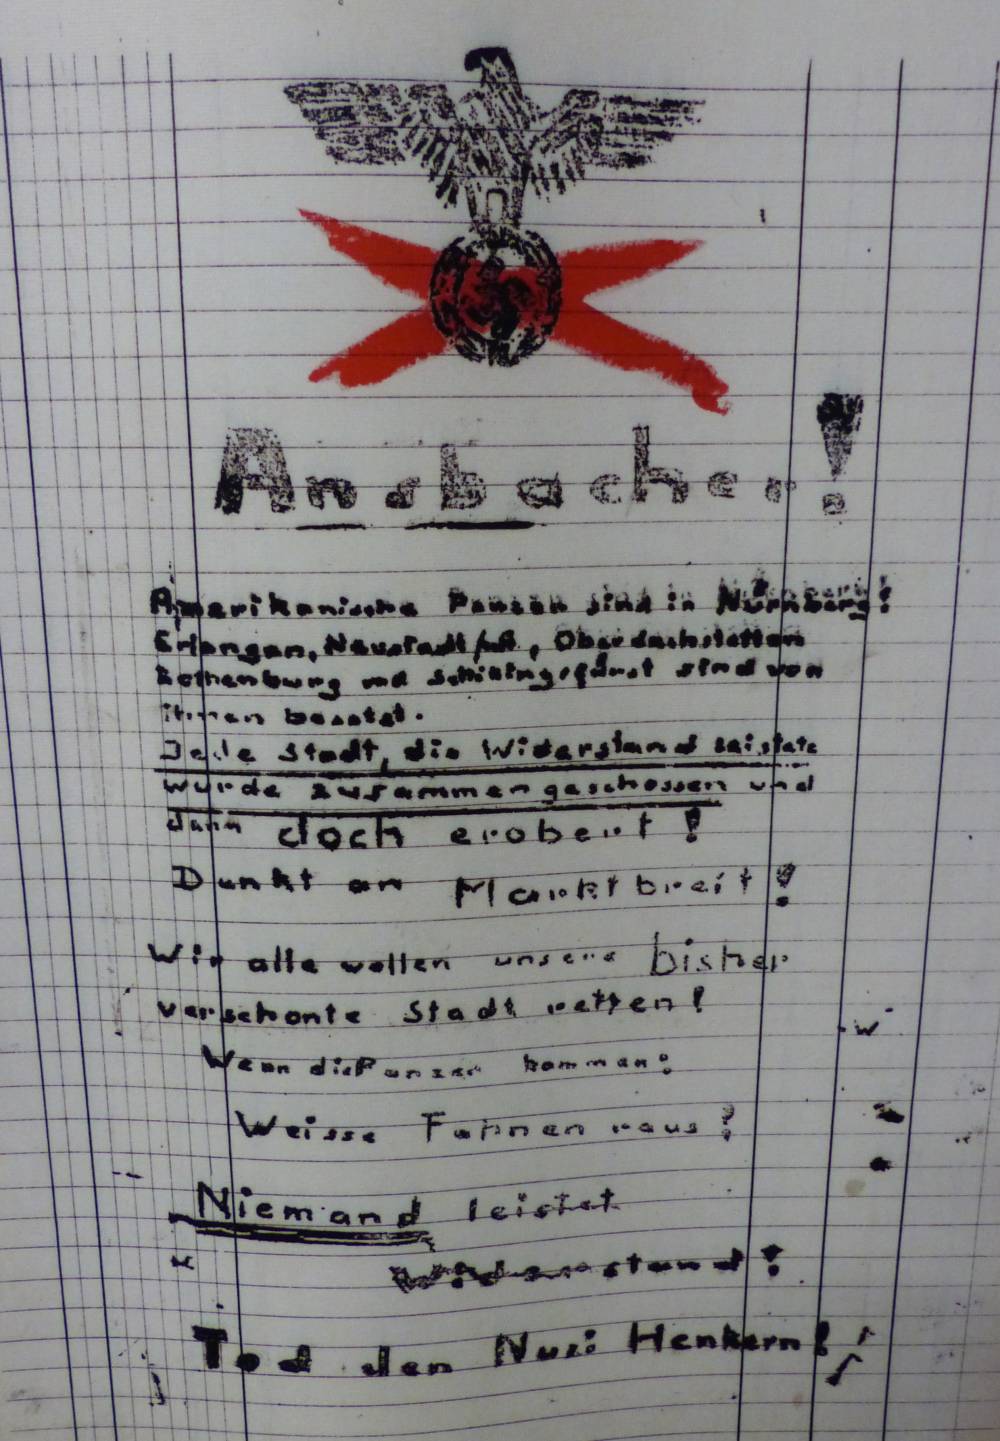 Ansbacher!
Amerikanische Panzer sind in Nürnberg!
Erlangen, Neustadt, Oberdachstetten
Rothenburg und Schillingsfürst sind von
ihnen besetzt.
Jede Stadt, die Widerstand leistete
wurde zusammengeschossen und
dann doch erobert!
Denkt an Marktbreit!
Wir alle wollen unsere bisher
verschonte Stadt retten!
Wenn die Panzer kommen:
Weisse Fahnen raus!
Niemand leistet
Widerstand!
Tod den Nazi Henkern!